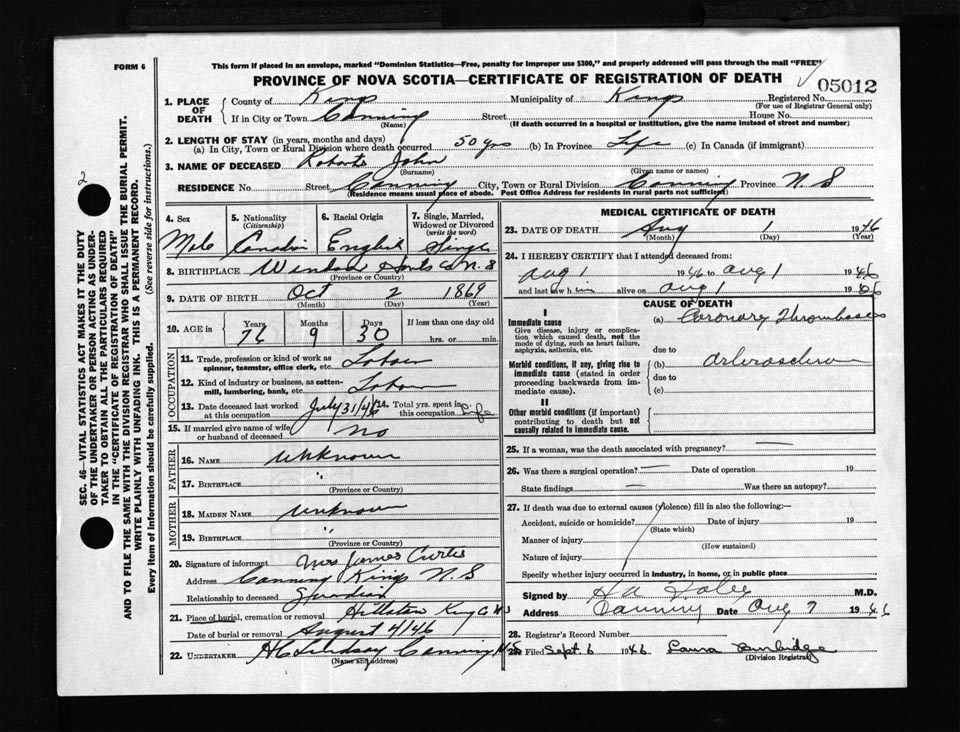 FORM 6
This form if placed in an envelope, marked "Dominion Statistics—Free, penalty for improper use $300," and properly addressed will pass through the mail "FREE"
PROVINCE OF NOVA SCOTIA—CERTIFICATE OF REGISTRATION OF DEATH
05012
1. PLACE OF DEATH
County of Kings Municipality of Kings Registered No.
(For use of Registrar General only)
If in City or Town Canning Street House No.
(Name) (If death occurred in a hospital or institution, give the name instead of street and number)
2. LENGTH OF STAY (in years, months and days)
(a) In City, Town or Rural Division where death occurred 50 yrs (b) In Province Life (c) In Canada (if immigrant)
3. NAME OF DECEASED Roberts John
(Surname) (Given name or names)
RESIDENCE No Street Canning City, Town or Rural Division Canning Province N.S
(Residence means usual place of abode. Post Office Address for residents in rural parts not sufficient)
4. Sex
5. Nationality
(Citizenship)
6. Racial Origin
7. Single, Married, Widowed or Divorced
(write the word)
Male English Single
8. BIRTHPLACE Windsor Hants Co N.S
(Province or Country)
9. DATE OF BIRTH Oct 2 1869
(Month) (Day) (Year)
10. AGE in
Years Months Days If less than one day old
76 9 30 hrs. or min.
OCCUPATION
11. Trade, profession or kind of work as spinner, teamster, office clerk, etc.
12. Kind of industry or business, as cotton-mill, lumbering, bank, etc.
13. Date deceased last worked at this occupation July 31/46
14. Total yrs. spent in this occupation Life
15. If married give name of wife or husband of deceased no
FATHER
16. NAME unknown
17. BIRTHPLACE "
(Province or Country)
MOTHER
18. MAIDEN NAME unknown
19. BIRTHPLACE "
(Province or Country)
20. Signature of informant Mrs James Curtis
Address Canning Kings N.S
Relationship to deceased
21. Place of burial, cremation or removal
Date of burial or removal August 4/46
22. UNDERTAKER H C Lindsay Canning N S
(Name and address)
MEDICAL CERTIFICATE OF DEATH
23. DATE OF DEATH Aug 1 1946
(Month) (Day) (Year)
24. I HEREBY CERTIFY that I attended deceased from:
Aug 1 1946 to Aug 1 1946
and last saw him alive on Aug 1 1946
CAUSE OF DEATH
I
Immediate cause
Give disease, injury or complication which caused death, not the mode of dying, such as heart failure, asphyxia, asthenia, etc.
(a) Coronary Thrombosis
due to
Morbid conditions, if any, giving rise to immediate cause (stated in order proceeding backwards from immediate cause).
(b)
due to
(c)
II
Other morbid conditions (if important) contributing to death but not causally related to immediate cause.
25. If a woman, was the death associated with pregnancy? —
26. Was there a surgical operation? — Date of operation 19
State findings — Was there an autopsy?
27. If death was due to external causes (violence) fill in also the following:—
Accident, suicide or homicide? Date of injury 19
(State which)
Manner of injury
(How sustained)
Nature of injury
Specify whether injury occurred in industry, in home, or in public place
Signed by M.D.
Address Canning Date Aug 7 1946
28. Registrar's Record Number
29. Filed Sept. 6 1946 Laura Burbidge
(Division Registrar)
2
SEC. 46—VITAL STATISTICS ACT MAKES IT THE DUTY
OF THE UNDERTAKER OR PERSON ACTING AS UNDER-
TAKER TO OBTAIN ALL THE PARTICULARS REQUIRED
IN THE "CERTIFICATE OF REGISTRATION OF DEATH"
AND TO FILE THE SAME WITH THE DIVISION REGISTRAR WHO SHALL ISSUE THE BURIAL PERMIT.
WRITE PLAINLY WITH UNFADING INK. THIS IS A PERMANENT RECORD.
Every item of information should be carefully supplied. (See reverse side for instructions.)